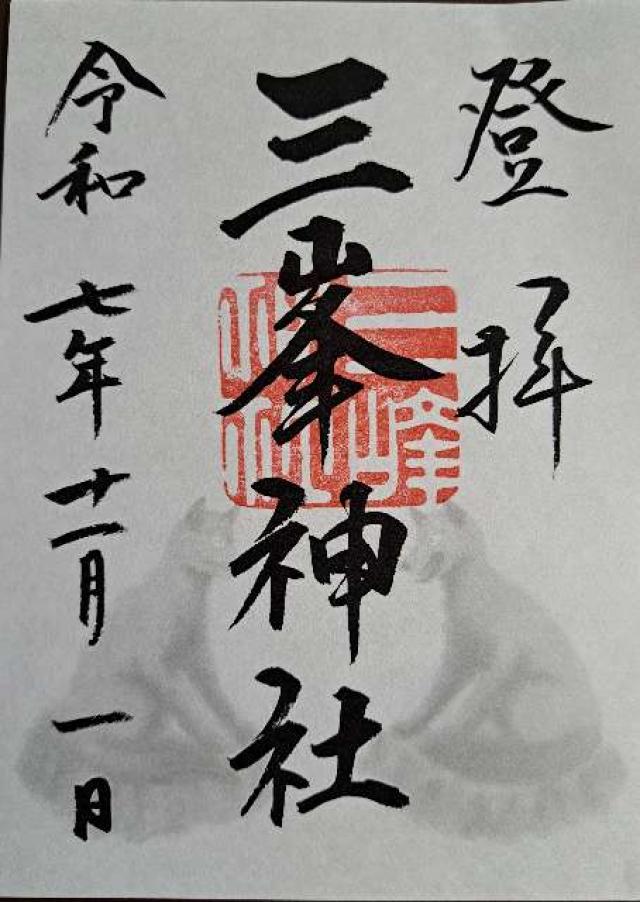 登拝
三峯神社
令和七年十一月一日